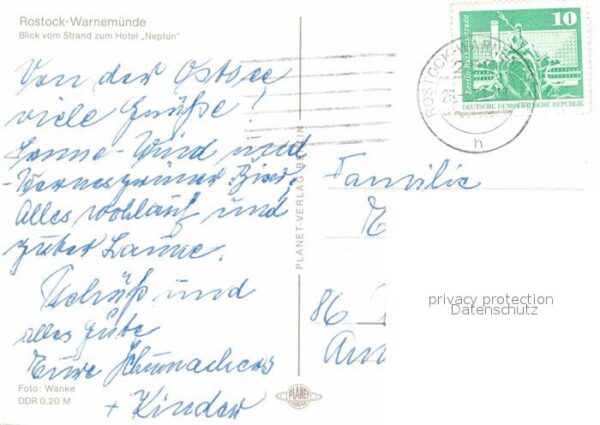 Rostock-Warnemünde
Blick vom Strand zum Hotel „Neptun"
Von der Ostsee
viele Grüße!
Sonne - Wind und
- Wernesgrüner Bier.
Alles wohlauf und
guter Laune.
Tschüß und
alles Gute
Eure Schumachers
+ Kinder
Foto: Wanke
DDR 0,20 M
PLANET-VERLAG BERLIN
PLANET
10
DEUTSCHE DEMOKRATISCHE REPUBLIK
ROSTOCK-WARNE
h
Familie
86
privacy protection
Datenschutz